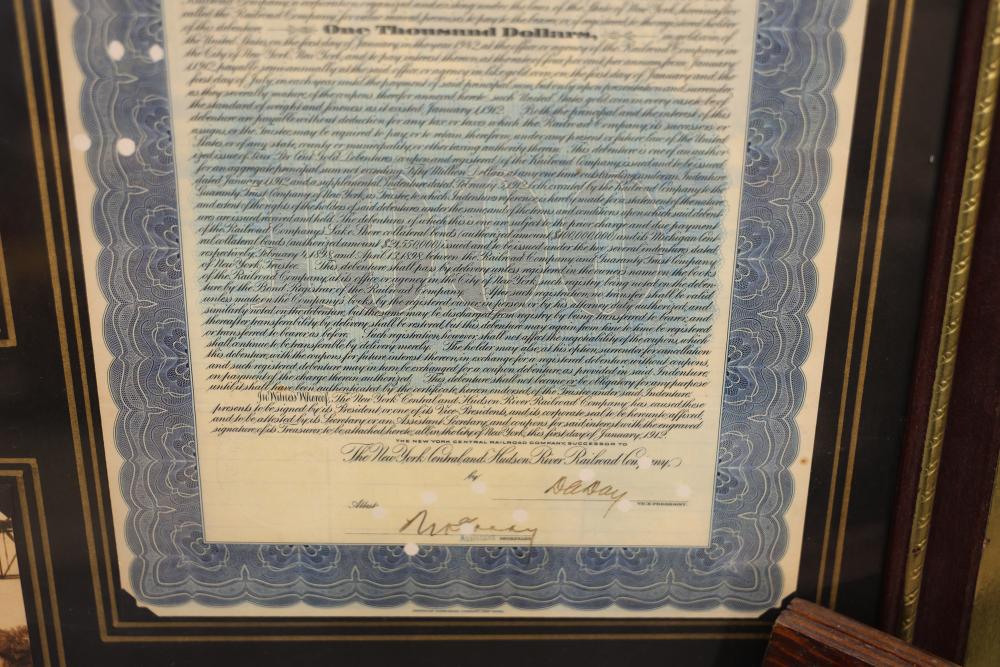 called the Railroad Company, for value received promises to pay to the bearer, or if registered to the registered holder
One Thousand Dollars,
United States on the first day of January in the year 1942, at the office or agency of the Railroad Company in
the City of New York, New York, and to pay interest thereon, at the rate of four per cent per annum, from January
1, 1912, payable semi-annually at the said office or agency in like gold coin on the first day of January and the
first day of July, in each year until the payment of said principal sum, but only upon presentation and surrender
as they severally mature of the coupons therefor annexed hereto such United States gold coin in every case to be of
the standard of weight and fineness as it existed January 1, 1912. Both the principal and the interest of this
debenture are payable without deduction for any tax or taxes which the Railroad Company, its successors or
assigns, or the Trustee, may be required to pay, or to retain therefrom, under any present or future law of the United
States or of any state, county or municipality, or other taxing authority therein. This debenture is one of an author-
ized issue of Four Per Cent Gold Debentures (coupon and registered) of the Railroad Company, issued and to be issued
for an aggregate principal sum not exceeding Fifty Million Dollars at any one time outstanding under an Indenture
dated January 1, 1912, and a supplemental Indenture dated February 5, 1912, both executed by the Railroad Company to the
Guaranty Trust Company of New York, as Trustee, to which Indentures reference is hereby made for a statement of the nature
and extent of the rights of the holders of said debentures under the same, and of the terms and conditions upon which said deben-
tures are issued, received and held. The debentures of which this is one are subject to the prior charge and due payment
of the Railroad Company's Lake Shore collateral bonds (authorized amount $100,000,000) and its Michigan Cent-
ral collateral bonds (authorized amount $21,550,000) issued and to be issued under the two several indentures dated
respectively, February 4, 1898, and April 13, 1898, between the Railroad Company and Guaranty Trust Company
of New York, Trustee. This debenture shall pass by delivery unless registered in the owner's name on the books
of the Railroad Company, at its office or agency in the City of New York, such registry being noted on the deben-
ture by the Bond Registrar of the Railroad Company. After such registration no transfer shall be valid
unless made on the Company's books by the registered owner, in person or by his attorney, duly authorized, and
similarly noted on the debenture, but the same may be discharged from registry by being transferred to bearer, and
thereafter transferability by delivery shall be restored, but this debenture may again from time to time be registered
or transferred to bearer as before. Such registration, however, shall not affect the negotiability of the coupons, which
shall continue to be transferable by delivery merely. The holder may also, at his option, surrender for cancellation
this debenture, with the coupons for future interest thereon, in exchange for a registered debenture without coupons,
and such registered debenture may in turn be exchanged for a coupon debenture, as provided in said Indenture,
on payment of the charge therein authorized. This debenture shall not become or be obligatory for any purpose
until it shall have been authenticated by the certificate, hereon endorsed, of the Trustee under said Indenture.
In Witness Whereof, The New York Central and Hudson River Railroad Company has caused these
presents to be signed by its President or one of its Vice-Presidents, and its corporate seal to be hereunto affixed,
and to be attested by its Secretary or an Assistant Secretary, and coupons for said interest with the engraved
signature of its Treasurer to be attached hereto, all in the City of New York, this first day of January, 1912.
THE NEW YORK CENTRAL RAILROAD COMPANY, SUCCESSOR TO
The New York Central and Hudson River Railroad Company,
by DADay
VICE-PRESIDENT.
Attest
Assistant SECRETARY.